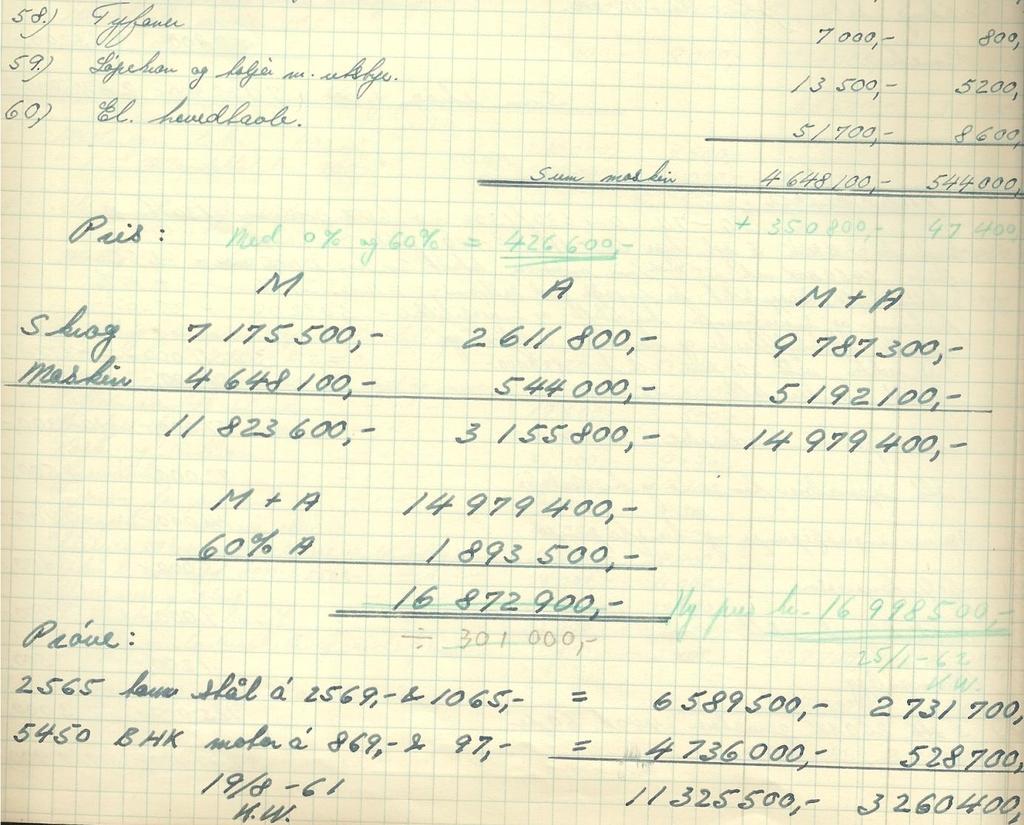 58.) Tyfoner 7 000,- 800,
59.) Løpekran og talje m. utstyr. 13 500,- 5200,
60.) El. hovedtavle. 51700,- 8600,
Sum maskin 4 648 100,- 544 000,
+ 350 800,- 47 400
Pris: Med 0% og 60% = 426 600,-
M A M + A
Skrog 7 175 500,- 2 611 800,- 9 787 300,-
Maskin 4 648 100,- 544 000,- 5 192 100,-
11 823 600,- 3 155 800,- 14 979 400,-
M + A 14 979 400,-
60% A 1 893 500,-
16 872 900,- Ny pris kr. 16 998 500,-
÷ 301 000,- 25/1-62
K.W.
Prøve:
2565 tonn stål á 2569,- & 1065,- = 6 589 500,- 2 731 700,
5450 BHK motor á 869,- & 97,- = 4 736 000,- 528 700,
19/8 -61 11 325 500,- 3 260 400,
K.W.